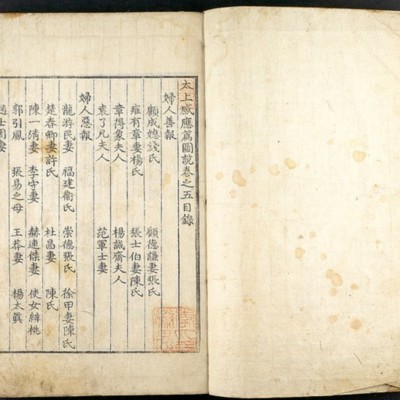 太上感應篇圖說卷之五目錄
婦人善報
顧成媳錢氏 顧德謙妻張氏
雍有章妻楊氏 張士伯妻陳氏
章得象夫人 楊誠齋夫人
袁了凡夫人 范軍士妻
婦人惡報
龍游民妻 福建衞氏 崇德張氏 徐甲妻陳氏
楚春卿妻許氏 杜昌妻 陳氏
陳一清妻 李守妻 赫連傑妻 使女絳桃
郭引鳳 張易之母 王莽妻 楊太眞